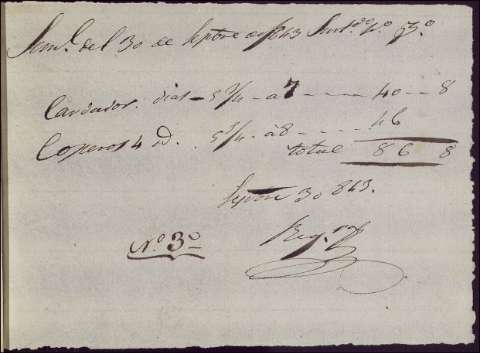 Sem.l del 30 de Septbre de 1843
Cardador. dias - 5 3/4 - a 7 - - - 40 - 8
Coperos 4 id. . 5 3/4 - a 8 - - - 46
total 86 8
Sepbre 30 843.
Nº 3º